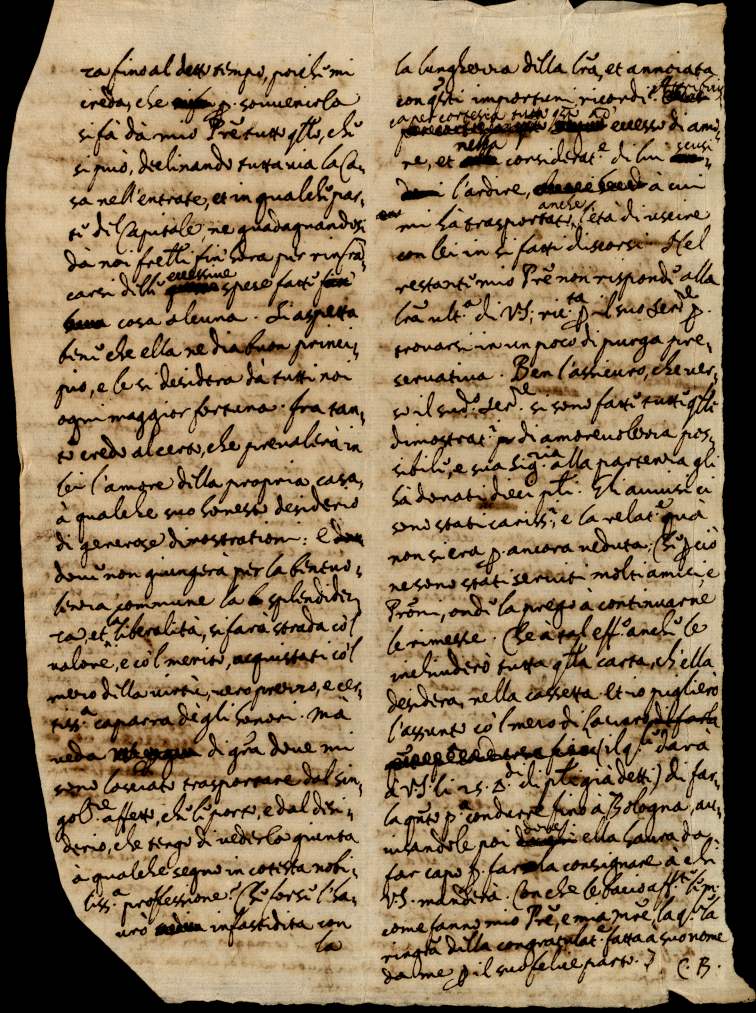 ra fino al detto tempo, poiche mi
creda, che p. souvenirla
si fà dà mio Prē tutto qllo, che
si può, declinando tutta uia la Ca-
sa nell'entrate, et in qualche par-
te del Capitale, ne guadagnandosi
dà noi frelli fin hora per rinfrā-
carsi delle excessiue spese fatte
cosa alcuna. Si aspetta
bene che ella ne dia buon princi-
pio, e le si desidera dà tutti noi
ogni maggior fortuna. Fra tan-
to credo al certo, che preualerà in
lei l'amore della propria casa
à qualche suo honesto desiderio
di generose dimostrationi: e
doue non giungerà per la beneuo-
lenza commune la splendidez-
za, et la liberalità, si farà strada co'l
ualore, e co'l merito, acquistati co'l
mezo della uirtù, uero prezzo, e cer-
tiss.a caparra degli honori. Mà
ueda di gra doue mi
sono lasciato trasportare dal sin-
gol.re affetto, che li porto, e dal desi-
derio, che tengo di uederla giunta
à qualche segno in cotesta nobi-
liss.a professione. Che forse l'ha-
urò infastidita con
la
la lungheria della lrā, et annoiata
con qsti importuni ricordi. Attribuis-
ca per cortesia tutto qsto ad eccesso di amo-
re, et nella considerat.e di lui scusi
l'ardire, à cui
mi hà trasportato anche l'età di uscire
con lei in si fatti discorsi. Nel
restante mio Prē non risponde alla
lrā ult.a di VS. ric.ta p il suo Ser.re p.
trouarsi in un poco di purga pre-
seruatiua. Ben l'assicuro, che uer-
so il sud.o Ser.re si sono fatte tutte qlle
dimostrat.i di amoreuoleza pos-
sibili, e sua Sig.ria alla partenza gli
hà donati dieci pli. Gli auuisi ci
sono stati cariss.i e la relat.e quà
non si era p. ancora ueduta. Che p ciò
ne sono stati seruiti molti amici, e
Proni, onde la prego à continuarne
le rimesse. Che à tal eff.o anche le
inchiuderò tutta qlla carta, ch'ella
desidera, nella cassetta. Et io piglierò
l'assunto co'l mezo di
(il q.le darà
à VS. li 25. di pli già detti) di far-
la qto p.a condurre fino à Bologna, au-
uisandole poi doue ella haurà da
far capo p. farla consignare à chi
VS. manderà. Con che le bacio aff.te le m.
come fanno mio Prē, e mia Mrē, la q.le la
ringra della congratulat.e fatta à suo nome
da me p il suo felice parto.
C. B.